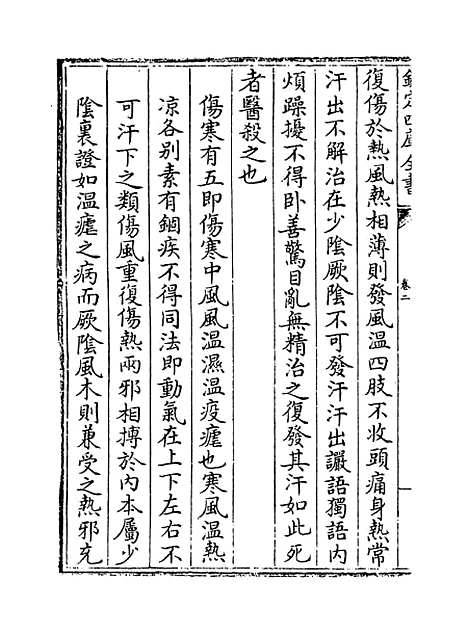 欽定四庫全書
卷二
復傷於熱風熱相薄則發風溫四肢不收頭痛身熱常
汗出不解治在少陰厥陰不可發汗汗出讝語獨語內
煩躁擾不得卧善驚目亂無精治之復發其汗如此死
者醫殺之也
傷寒有五即傷寒中風風溫濕溫疫瘧也寒風溫熱
凉各别素有錮疾不得同法即動氣在上下左右不
可汗下之類傷風重復傷熱兩邪相搏於內本屬少
陰裏證如溫瘧之病而厥陰風木則兼受之熱邪充